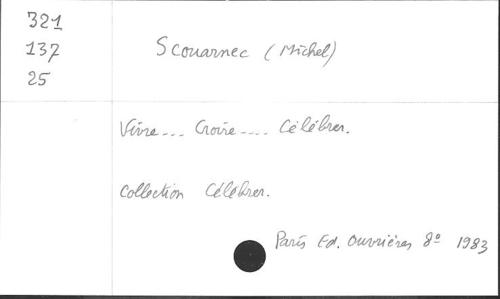 321
137
25
Scouarnec (Michel)
Vivre... Croire.... Célébrer.
Collection Célébrer.
Paris Ed. Ouvrières 8º 1983